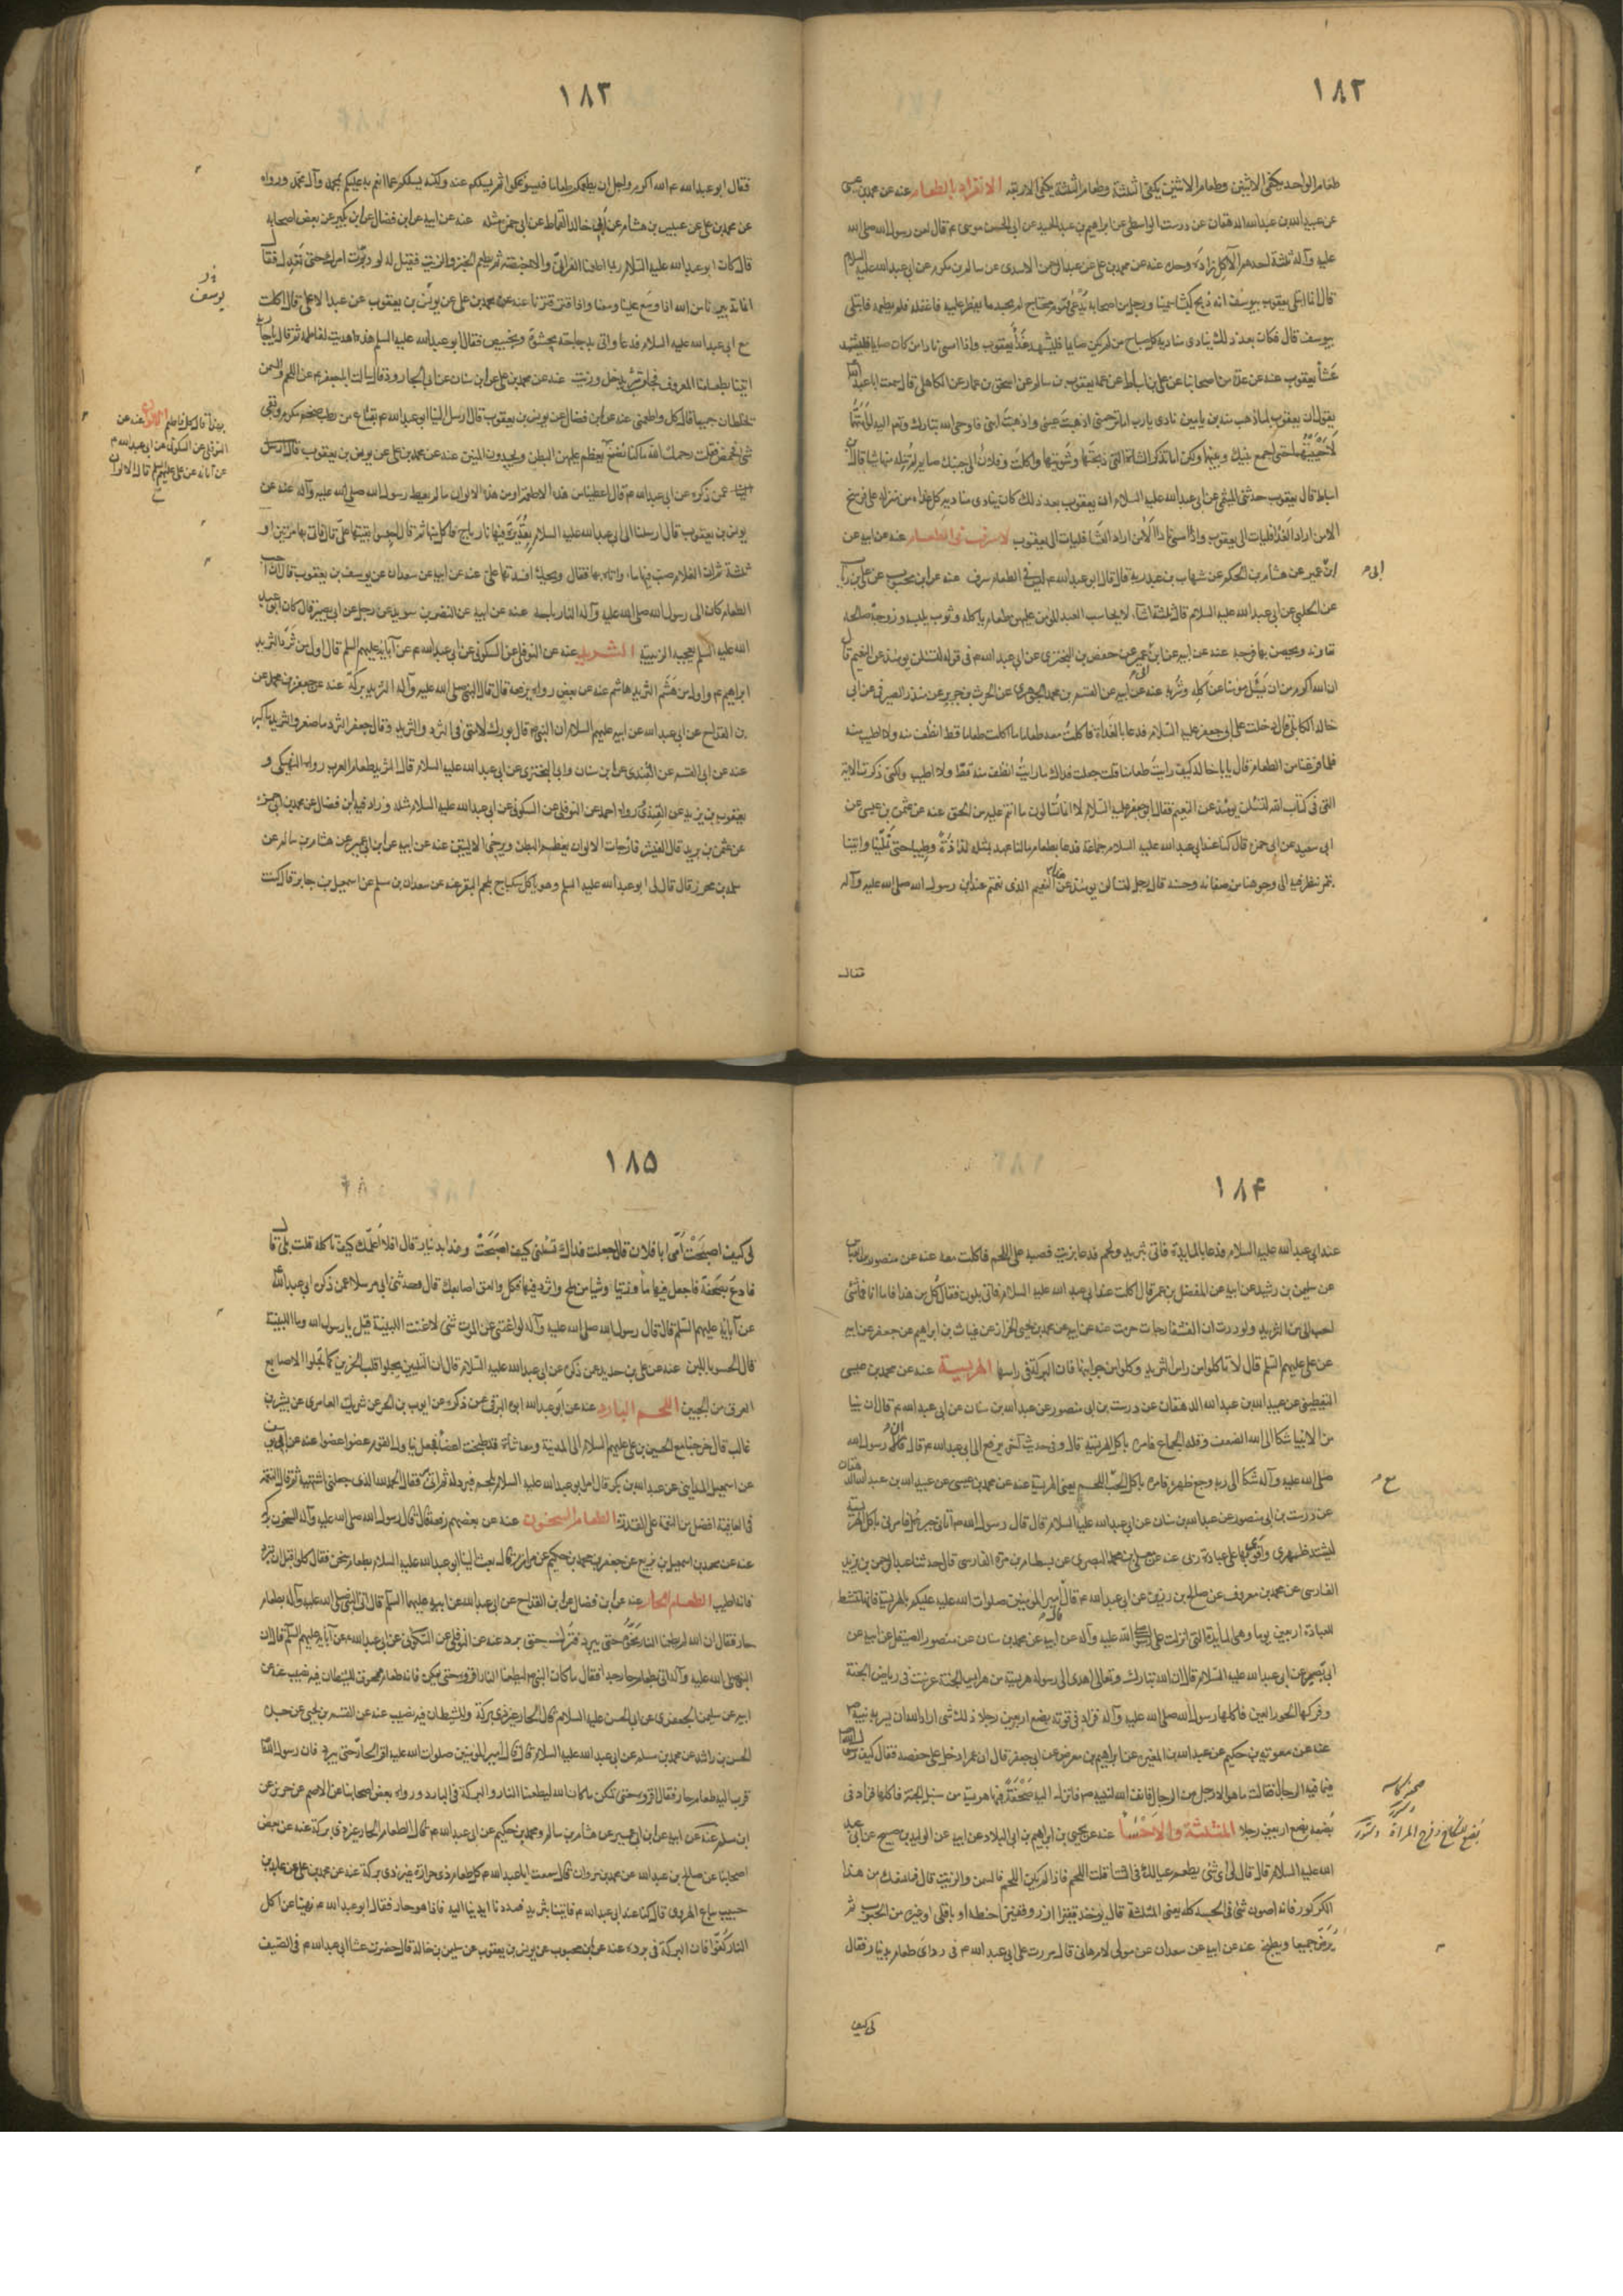 ١٨٢
طعام الواحد يكفى الاثنين وطعام الاثنين يكفى الثلثة وطعام الثلثة يكفى الاربعة الانفراد بالطعام عنه عن محمد بن عيسى
عن عبيد الله بن عبد الله الدهقان عن درست الواسطى عن ابراهيم بن عبد الحميد عن ابى الحسن موسى ع قال لعن رسول الله صلى الله
عليه وآله ثلثة احدهم الآكل زاده وحده عنه عن محمد بن على عن عبد الرحمن الاسدى عن سالم بن مكرم عن ابى عبد الله عليه السلام
قال انما ابتلى يعقوب بيوسف انه ذبح كبشا سمينا ورجل من اصحابه محتاج لم يجد ما يفطر عليه فاغفله فلم يطعمه فابتلى
بيوسف قال فكان بعد ذلك ينادى مناديه كل صباح من لم يكن صايما فليشهد غداء يعقوب واذا امسى نادا من كان صايما فليشهد
عشاء يعقوب عنه عن عدة من اصحابنا عن على بن اسباط عن عمه يعقوب بن سالم عن اسحق بن عمار عن الكاهلى قال سمعت ابا عبد الله
يقول ان يعقوب لما ذهب منه بن يامين نادى يا رب اما ترحمنى اذهبت عينى واذهبت ابنى فاوحى الله تبارك وتعالى اليه لو امتهما
لاحييتهما حتى اجمع بينك وبينهما ولكن اما تذكر الشاة التى ذبحتها وشويتها واكلت وفلان الى جنبك صايم لم تنله منها شيئا قال ابن
اسباط قال يعقوب حدثنى الميثمى عن ابى عبد الله عليه السلام ان يعقوب بعد ذلك كان ينادى مناديه كل غداة من منزله على فرسخ
الا من اراد الغداء فليات الى يعقوب واذا امسى نادا الا من اراد العشاء فليات الى يعقوب لا سرف فى الطعام عنه عن ابيه عن
ابن عمير عن هشام بن الحكم عن شهاب بن عبد ربه قال قال ابو عبد الله ع ليس فى الطعام سرف عنه عن ابن محبوب عن على بن رئاب
ابى
عن الحلبى عن ابى عبد الله عليه السلام قال ثلثة اشياء لا يحاسب العبد المؤمن عليهن طعام ياكله وثوب يلبسه وزوجة صالحة
تعاونه ويحصن بها فرجه عنه عن ابيه عن ابن عمير عن حفص بن البخترى عن ابى عبد الله ع فى قوله لتسئلن يومئذ عن النعيم قال
ان الله اكرم من ان يسئل مؤمنا عن اكله وشربه عنه عن ابيه عن القسم بن محمد الجوهرى عن الحرث بن حريز عن سدير الصيرفى عن ابى
خالد الكابلى قال دخلت على ابى جعفر عليه السلام فدعا بالغداة فاكلت معه طعاما ما اكلت طعاما قط انظف منه ولا اطيب منه
فلما فرغنا من الطعام قال يا با خالد كيف رايت طعامنا قلت جعلت فداك ما رايت انظف منه قط ولا اطيب ولكنى ذكرت الاية
التى فى كتاب الله لتسئلن يومئذ عن النعيم فقال ابو جعفر عليه السلام لا انما تسالون ما انتم عليه من الحق عنه عن عثمن بن عيسى عن
ابى سعيد عن ابى حمزة قال كنا عند ابى عبد الله عليه السلام جماعة فدعا بطعام ما لنا عهد بمثله لذاذة وطيبا حتى تملينا واتينا
بتمر ننظر فيه الى وجوهنا من صفائه وحسنه قال رجل لتسالن يومئذ عن النعيم الذى نعمتم عند ابن رسول الله صلى الله عليه وآله
فقال
١٨٣
فقال ابو عبد الله ع الله اكرم واجل ان يطعمكم طعاما فيسوغكموه ثم يسئلكم عنه ولكنه يسئلكم عما انعم به عليكم بمحمد وآل محمد ورواه
عن محمد بن على عن عبيس بن هشام عن ابى خالد القماط عن ابى حمزة مثله عنه عن ابيه عن ابن فضال عن ابن بكير عن بعض اصحابه
قال كان ابو عبد الله عليه السلام ربما اطعمنا الفرانى والاخبصة ثم يطعم الخبز والزيت فقيل له لو دبرت امرك حتى تعتدل فقال
انما تدبيرنا من الله اذا وسع علينا وسعنا واذا قتر قترنا عنه عن محمد بن على عن يونس بن يعقوب عن عبد الاعلى قال اكلت
يونس
مع ابى عبد الله عليه السلام فدعا واتى بدجاجة محشوة وبخبيص فقال ابو عبد الله عليه السلم هذه اهديت لفاطمة ثم قال يا جارية
ايتينا بطعامنا المعروف فجاءت بثريد خل وزيت عنه عن محمد بن على عن ابن سنان عن ابى الجارود قال سالت ابا جعفر ع عن اللحم والسمن
يخلطان جميعا قال كل واطعمنى عنه عن ابن فضال عن يونس بن يعقوب قال ارسل الينا ابو عبد الله ع
بهذا قال كل واطعم الالوان عنه عن
النوفلى عن السكونى عن ابى عبد الله ع
عن آبائه عن على عليهم السلم قال الالوان
يعظم عليهن البطن ويخدرن المتن عنه عن محمد بن على عن يونس بن يعقوب قال ارسل
عمن ذكره عن ابى عبد الله ع قال اعطينا من هذه الاطعمة او من هذه الالوان ما لم يعط رسول الله صلى الله عليه وآله عنه عن
يونس بن يعقوب قال ارسلنا الى ابى عبد الله عليه السلام بقديرة فيها نار باج فاكل منها ثم قال احبسوا بقيتها على قال فاتى بها مرتين او
ثلثة ثم ان الغلام صب فيها ماء واتاه بها فقال ويحك افسدتها على عنه عن ابيه عن سعدان عن يوسف بن يعقوب قال كان احب
الطعام كان الى رسول الله صلى الله عليه وآله النارباجة عنه عن ابيه عن النضر بن سويد عن رجل عن ابى بصير قال كان ابو عبد
الله عليه السلم يعجبه الزبيبة الثريد عنه عن النوفلى عن السكونى عن ابى عبد الله ع عن آبائه عليهم السلم قال اول من ثرد الثريد
ابراهيم ع واول من هشم الثريد هاشم عنه عن بعض رواه يرفعه قال قال النبى صلى الله عليه وآله الثريد بركة عنه عن جعفر بن محمد عن
بن القداح عن ابى عبد الله عن ابيه عليهم السلام ان النبى قال بورك لامتى فى الثرد والثريد وقال جعفر الثرد ما صغر والثريد ما كبر
عنه عن ابى القسم عن القندى عن ابن سنان وابى البخترى عن ابى عبد الله عليه السلام قال الثريد طعام العرب رواه النهيكى و
يعقوب بن يزيد عن القندى رواه احمد عن النوفلى عن السكونى عن ابى عبد الله عليه السلام مثله وزاد فيه ابن فضال عن محمد بن ابى حمزة
عن عمر بن يزيد الالوان يعظم البطن ويرخى الاليتين عنه عن ابيه عن ابن ابى عمير عن هشام بن سالم عن
سلمة بن محرز قال قال لى ابو عبد الله عليه السلم وهو ياكل سكباج بلحم البقر عنه عن سعدان بن سلم عن اسمعيل بن جابر قال كنت
١٨۴
عند ابى عبد الله عليه السلام فدعا بالمايدة فاتى بثريد ولحم فدعا بزيت فصبه على اللحم فاكلت معه عنه عن منصور بن العباس
عن سليمن بن رشيد عن ابيه عن المفضل بن عمر قال اكلت عند ابى عبد الله عليه السلام فاتى بلون فقال كل من هذا فاما انا فما شئ
احب الى من الثريد ولوددت ان الفشفارجات حرمت عنه عن ابيه عن محمد بن يحيى الخزاز عن غياث بن ابراهيم عن جعفر عن ابيه
عن على عليهم السلم قال لا تاكلوا من راس الثريد وكلوا من جوانبها فان البركة فى راسها الهريسة عنه عن محمد بن عيسى
اليقطينى عن عبيد الله بن عبد الله الدهقان عن درست بن ابى منصور عن عبد الله بن سنان عن ابى عبد الله ع قال ان نبيا
من الانبيا شكا الى الله الضعف وقلة الجماع فامره باكل الهريسة قال وفى حديث آخر يرفع الى ابى عبد الله ع قال ان رسول الله
صلى الله عليه وآله شكا الى ربه وجع ظهره فامره باكل الحب باللحم يعنى الهريسة عنه عن محمد بن عيسى عن عبيد الله بن عبد الله الدهقان
عن درست بن ابى منصور عن عبد الله بن سنان عن ابى عبد الله عليه السلام قال قال رسول الله ص اتانى جبرئيل فامرنى باكل الهريسة
ليشتد ظهرى واقوى بها على عبادة ربى عنه عن معلى بن محمد البصرى عن بسطام بن مرة الفارسى قال حدثنا عبد الرحمن بن يزيد
الفارسى عن محمد بن معروف عن صالح بن رزين عن ابى عبد الله ع قال قال امير المومنين صلوات الله عليه عليكم بالهريسة فانها تنشط
للعبادة اربعين يوما وهى المايدة التى انزلت على رسول الله صلى الله عليه وآله عن ابيه عن محمد بن سنان عن منصور الصيقل عن ابيه عن
ابى بصير عن ابى عبد الله عليه السلام قال ان الله تبارك وتعالى اهدى الى رسوله هريسة من هرايس الجنة غرست فى رياض الجنة
وفركها الحور العين فاكلها رسول الله صلى الله عليه وآله فزاد فى قوته بضع اربعين رجلا وذلك شئ اراد الله ان يسر به نبيه ص
عنه عن معوية بن حكيم عن عبد الله بن المغيرة عن ابراهيم بن معرض عن ابى جعفر قال ان عمر دخل على حفصة فقال كيف رسول الله
فيما فيه الرجال فقالت ما هو الا رجل من الرجال فانف الله لنبيه ص فانزل اليه صحفة فيها هريسة من سنبل الجنة فاكلها فزاد فى
بضعه بضع اربعين رجلا المثلثة والاحساء عنه عن يحيى بن ابراهيم بن ابى البلاد عن ابيه عن الوليد بن صبيح عن ابى عبد
الله عليه السلام قال قال لى اى شئ يطعم عيالك فى الشتا قلت اللحم فاذا لم يكن اللحم فالسمن والزيت قال فما منعك من هذا
الكركور فانه اصون شئ فى الجسد كله يعنى المثلثة قال يوخذ قفيز ارز وقفيز حنطة او باقلى او غيره من الحبوب ثم
يرض جميعا ويطبخ عنه عن ابيه عن سعدان عن مولى لام هانى قال مررت على ابى عبد الله ع فى ردائى طعام بدينار فقال
لى كيف
١٨٥
لى كيف اصبحت اما يا فلان قال جعلت فداك تسئلنى كيف اصبحت وهذا بدينار قال افلا اعلمك كيف تاكله قلت بلى قال
فادع بصحفة فاجعل فيها ماء وزيتا وشيئا من ملح واثرد فيها فكل والعق اصابعك قال وحدثنى ابى مرسلا عمن ذكره عن ابى عبد الله
عن آبائه عليهم السلم قال قال رسول الله صلى الله عليه وآله لو اغنى عن الموت شئ لاغنت التلبينة قيل يا رسول الله وما التلبينة
قال الحسو باللبن عنه عن على بن حديد عن ذكره عن ابى عبد الله عليه السلام قال ان التلبين يجلوا قلب الحزين كما تجلوا الاصابع
العرق من الجبين اللحم البارد عنه عن ابو عبد الله ابوه البرقى عمن ذكره عن ايوب بن الحر عن شريك العامرى عن بشر بن
غالب قال خرجنا مع الحسين بن على عليهم السلام الى المدينة ومعنا شاة قد طبخت اعضاء فجعل يناول القوم عضوا عضوا عنه عن ابى يوسف
عن اسمعيل المداينى عن عبد الله بن بكر قال امر ابو عبد الله عليه السلام بلحم فبرد له ثم اتى به فقال الحمد لله الذى جعلنى اشتهيه ثم قال النعمة
فى العافية افضل من النعمة على القدرة الطعام السخون عنه عن بعضهم رفعه قال قال رسول الله صلى الله عليه وآله السخون بركة
عنه عن محمد بن اسمعيل بن بزيع عن جعفر بن محمد بن حكيم عن مرازم قال بعث الينا ابو عبد الله عليه السلام بطعام سخن فقال كلوا قبل ان يبرد
فانه اطيب الطعام الحار عنه عن ابن فضال عن ابن القداح عن ابى عبد الله عن ابيه عليهما السلم قال اتى النبى صلى الله عليه وآله بطعام
حار فقال ان الله لم يطعمنا النار نحوه حتى يبرد فترك حتى برد عنه عن النوفلى عن السكونى عن ابى عبد الله ع عن آبائه عليهم السلم قال ان
النبى صلى الله عليه وآله اتى بطعام حار جدا فقال ما كان الله ليطعمنا النار اقروه حتى يمكن فانه طعام ممحوق للشيطان فيه نصيب عنه عن
ابيه عن سليمن الجعفرى عن ابى الحسن عليه السلام قال الحار غير ذى بركة وللشيطان فيه نصيب عنه عن القسم بن يحيى عن جده
الحسن بن راشد عن محمد بن مسلم عن ابى عبد الله عليه السلام قال قال امير المومنين صلوات الله عليه اقروا الحار حتى يبرد فان رسول الله
قرب اليه طعام حار فقال اقروه حتى يمكن ما كان الله ليطعمنا النار والبركة فى البارد ورواه بعض اصحابنا عن الاصم عن حريز عن
ابن مسلم عنه عن ابيه عن ابن ابى عمير عن هشام بن سالم ومحمد بن حكيم عن ابى عبد الله ع قال الطعام الحار غير ذى بركة عنه عن بعض
اصحابنا عن صالح بن عبد الله عن محمد بن مروان قال سمعت ابا عبد الله ع كل طعام ذى حرارة غير ذى بركة عنه عن محمد بن على عن عائذ بن
حبيب بياع الهروى قال كنا عند ابى عبد الله ع فاتينا بثريد فمددنا ايدينا اليه فاذا هو حار فقال ابو عبد الله ع نهينا عن اكل
النار كفوا فان البركة فى برده عنه عن ابن محبوب عن يونس بن يعقوب عن سليمن بن خالد قال حضرت عشاء ابى عبد الله ع فى الصيف